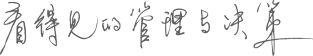 看得见的管理与决策